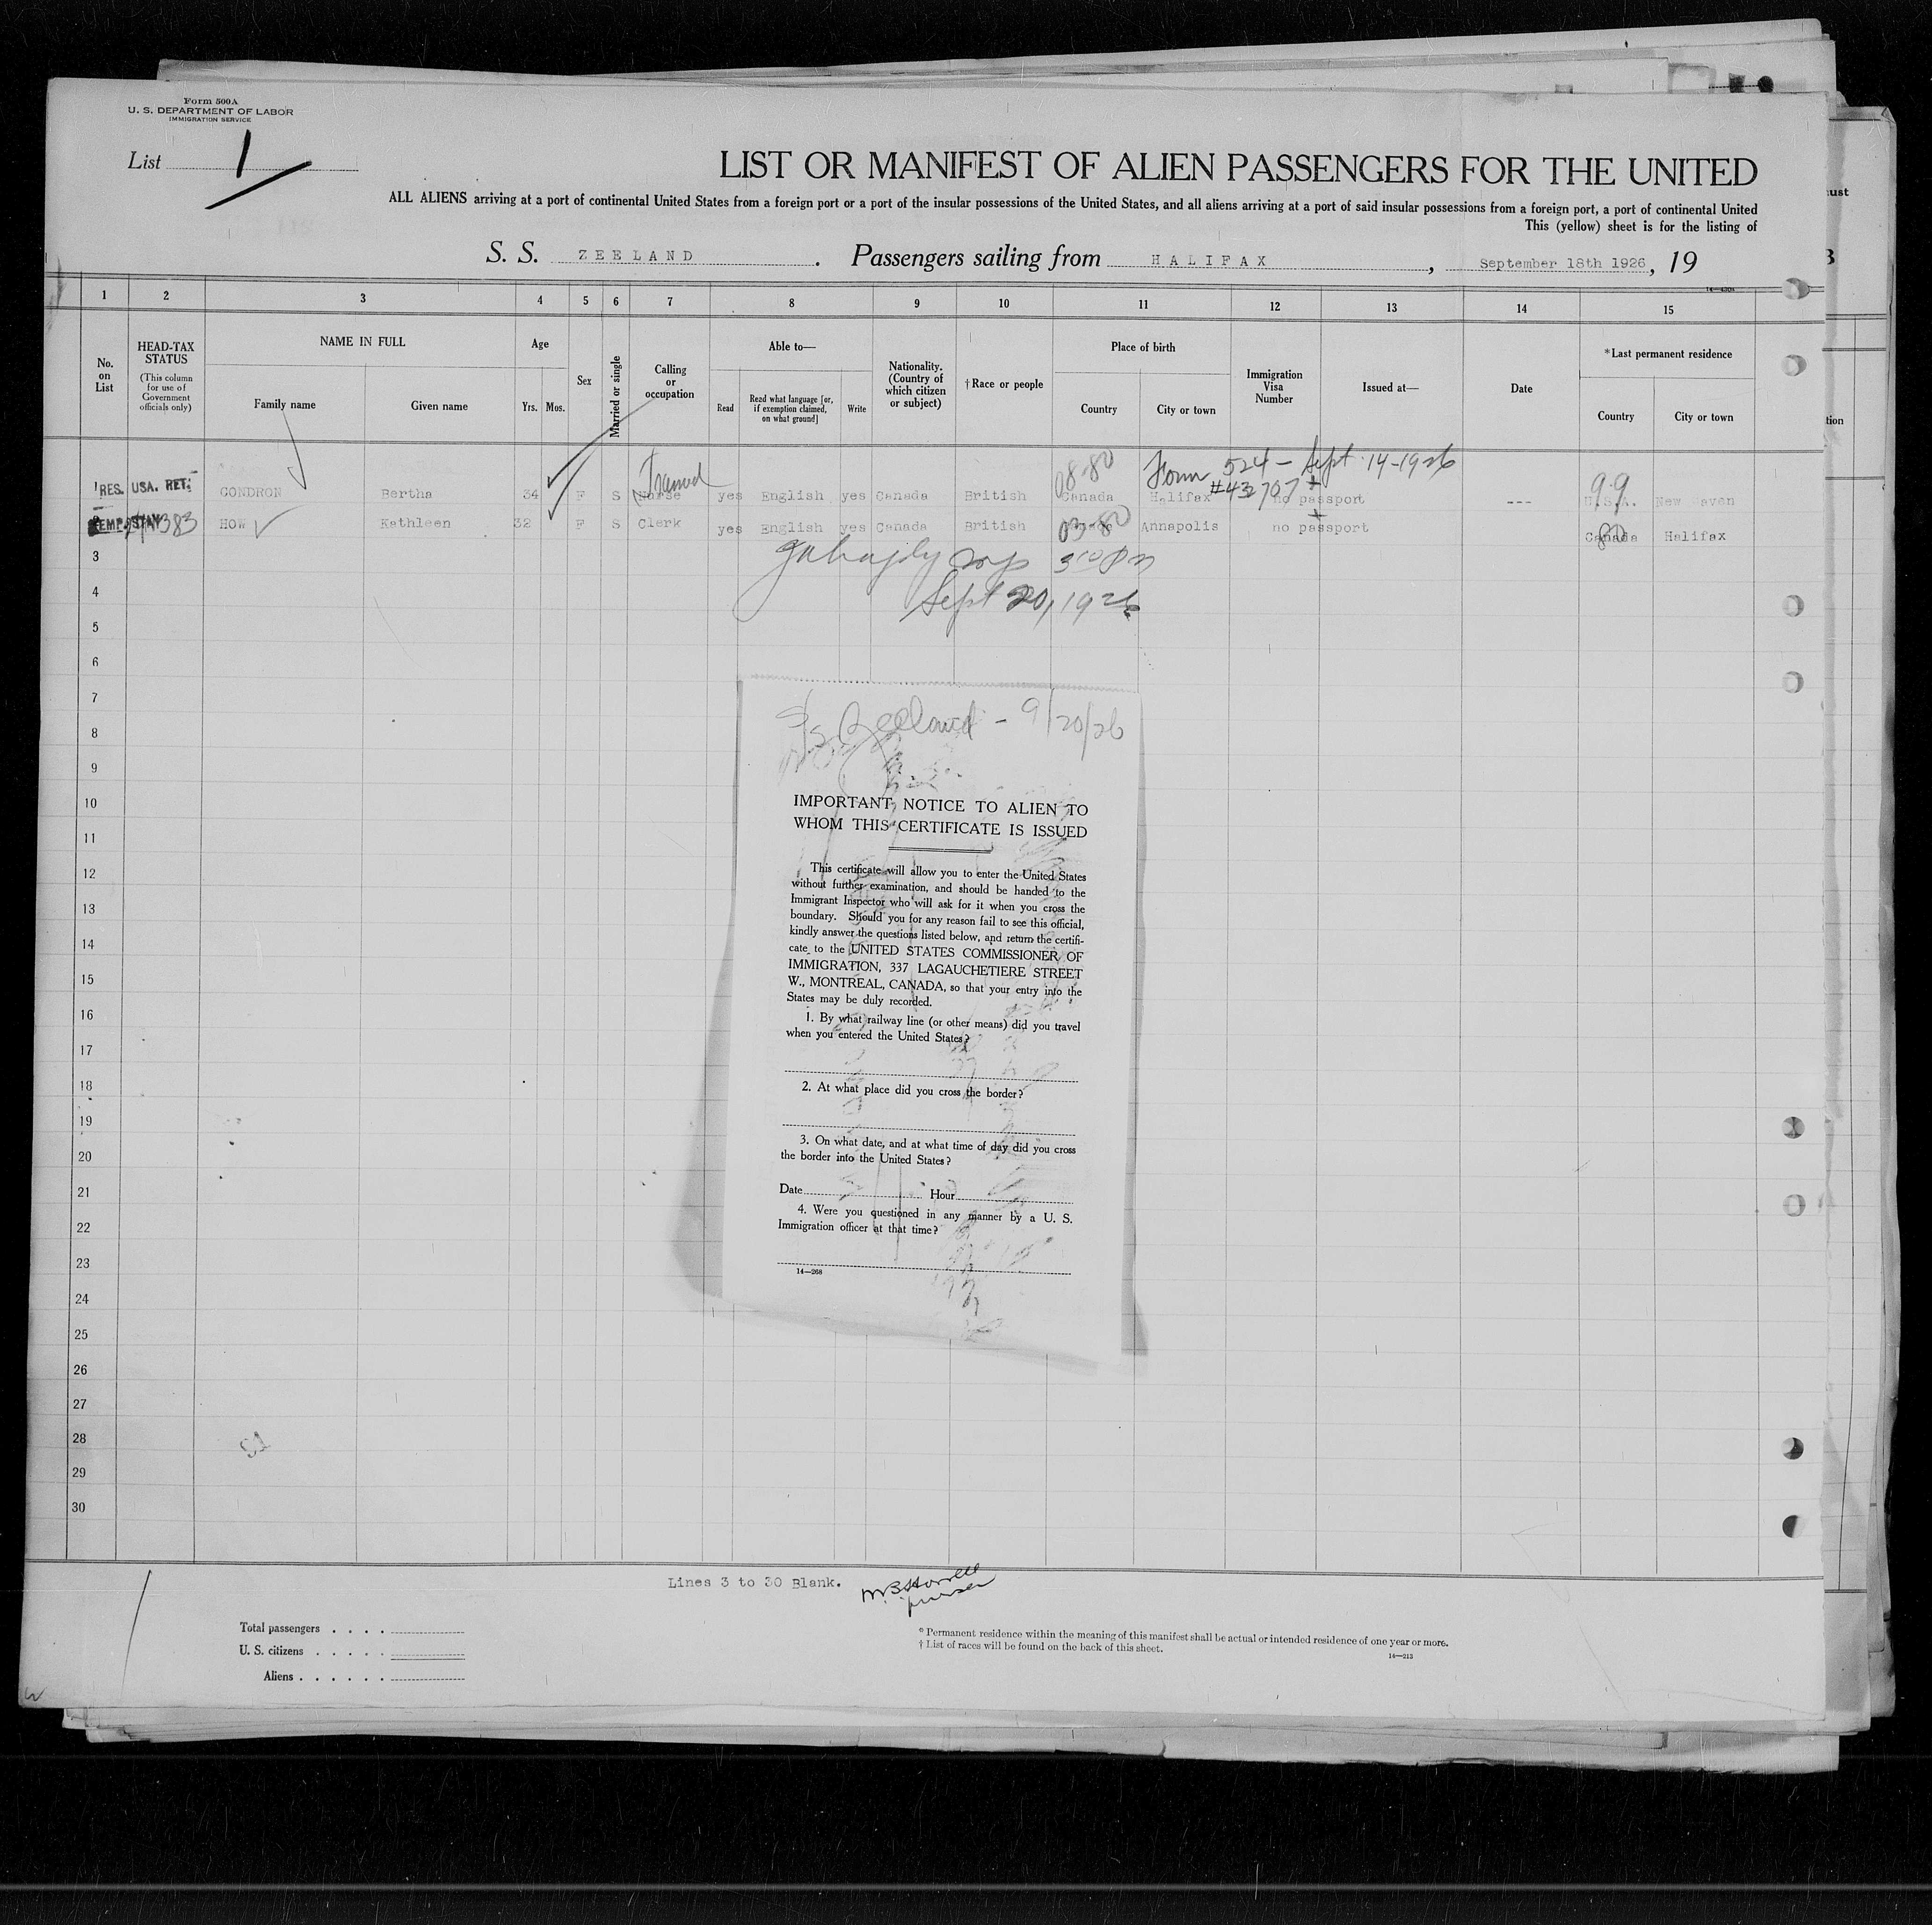 Form 500A
U. S. DEPARTMENT OF LABOR
IMMIGRATION SERVICE
List 1
LIST OR MANIFEST OF ALIEN PASSENGERS FOR THE UNITED
ALL ALIENS arriving at a port of continental United States from a foreign port or a port of the insular possessions of the United States, and all aliens arriving at a port of said insular possessions from a foreign port, a port of continental United
This (yellow) sheet is for the listing of
S. S. ZEELAND. Passengers sailing from HALIFAX, September 18th 1926, 19
1 2 3 4 5 6 7 8 9 10 11 12 13 14 15
No. on List
HEAD-TAX STATUS (This column for use of Government officials only)
NAME IN FULL
Family name
Given name
Age
Yrs. Mos.
Sex
Married or single
Calling or occupation
Able to—
Read
Read what language [or, if exemption claimed, on what ground]
Write
Nationality. (Country of which citizen or subject)
†Race or people
Place of birth
Country
City or town
Immigration Visa Number
Issued at—
Date
*Last permanent residence
Country
City or town
08-80 Form 524 - Sept. 14-1926
#43707 99
1 RES. USA. RET. CONDRON Bertha 34 F S Nurse yes English yes Canada British Canada Halifax no passport --- U.S.A. New Haven
TEMP. STAY 383 HOW Kathleen 32 F S Clerk yes English yes Canada British 03-80 Annapolis no passport Canada 80 Halifax
3 3 00 Pm
4 Sept 20, 1926
5
6
7
8
9
10
11
12
13
14
15
16
17
18
19
20
21
22
23
24
25
26
27
28
29
30
S/S Zeeland - 9/20/26
IMPORTANT NOTICE TO ALIEN TO
WHOM THIS CERTIFICATE IS ISSUED
This certificate will allow you to enter the United States
without further examination, and should be handed to the
Immigrant Inspector who will ask for it when you cross the
boundary. Should you for any reason fail to see this official,
kindly answer the questions listed below, and return the certifi-
cate to the UNITED STATES COMMISSIONER OF
IMMIGRATION, 337 LAGAUCHETIERE STREET
W., MONTREAL, CANADA, so that your entry into the
States may be duly recorded.
1. By what railway line (or other means) did you travel
when you entered the United States?
2. At what place did you cross the border?
3. On what date, and at what time of day did you cross
the border into the United States?
Date Hour
4. Were you questioned in any manner by a U. S.
Immigration officer at that time?
14—268
Lines 3 to 30 Blank.
purser
Total passengers . . . .
U. S. citizens . . . . .
Aliens . . . . . .
* Permanent residence within the meaning of this manifest shall be actual or intended residence of one year or more.
† List of races will be found on the back of this sheet.
14—213